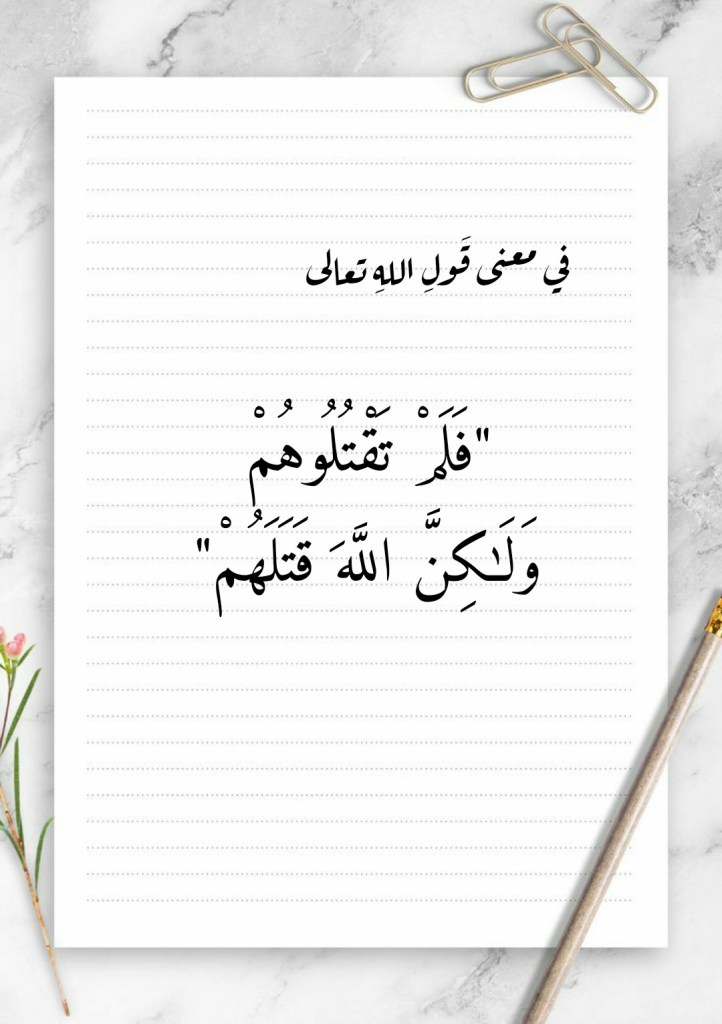 في معنى قَولِ اللهِ تعالى
"فَلَمْ تَقْتُلُوهُمْ
وَلَٰكِنَّ اللَّهَ قَتَلَهُمْ"